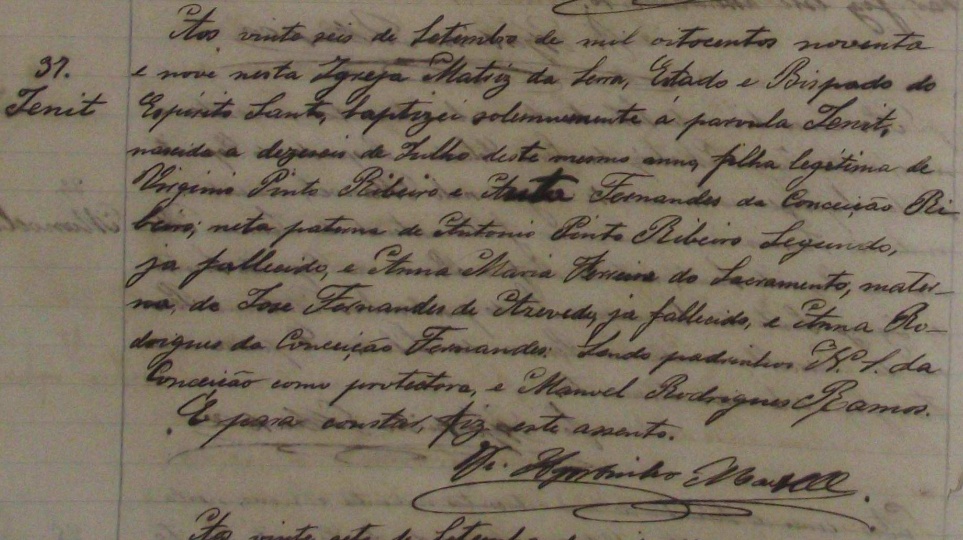 Aos vinte seis de Setembro de mil oitocentos noventa
37.
Zenit
e nove nesta Igreja Matriz da Serra, Estado e Bispado do
Espirito Santo, baptizei solemnemente á parvula Zenit,
nascida a dezeseis de Julho deste mesmo anno, filha legitima de
Virginio Pinto Ribeiro e Anta Fernandes da Conceição Ri-
beiro; neta paterna de Antonio Pinto Ribeiro Segundo,
ja fallecido, e Anna Maria Ferreira do Sacramento, mater-
na, de Jose Fernandes de Azevedo, ja fallecido, e Anna Ro-
drigues da Conceição Fernandes: Sendo padrinhos N. S. da
Conceição como protectora, e Manoel Rodrigues Ramos.
E para constar, fiz este assento.
Aos vinte sete de Setembro